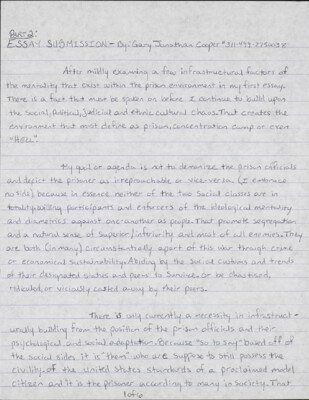 PART 2:
ESSAY SUBMISSION - By: Gary Jonathan Cooper
After mildly examing a few infrastructural factors of
the mentality that exist within the prison environment in my first essay.
There is a fact that must be spoken on before I continue to build upon
the social, political, judicial and ethnic cultural chaos. That creates the
environment that most define as prison, concentration camp or even
"Hell."
My goal or agenda is not to demonize the prison officials
and depict the prisoner as irreproachable or vice-versa. (I embrace
no side) because in essence neither of the two social classes are in
totality being participants and enforcers of the ideological mentality
and diametrics against one-another as people. That promote segregation
and a natural sense of superior/inferiority and most of all enemies. They
are both (in many) circumstantially apart of this war through crime
or economical sustainability. Abiding by the social customs and trends
of their designated status and peers to survive. Or be chastised,
ridiculed, or viciously casted away by their peers.
There is only currently a necessity in infrastruct-
urally building from the position of the prison officials and their
psychological and social adaptation. Because "so to say" based off of
the social sides, it is "them" who are suppose to still possess the
civility of the united states standards of a proclaimed model
citizen and it is the prisoner according to many in society. That
1 of 6